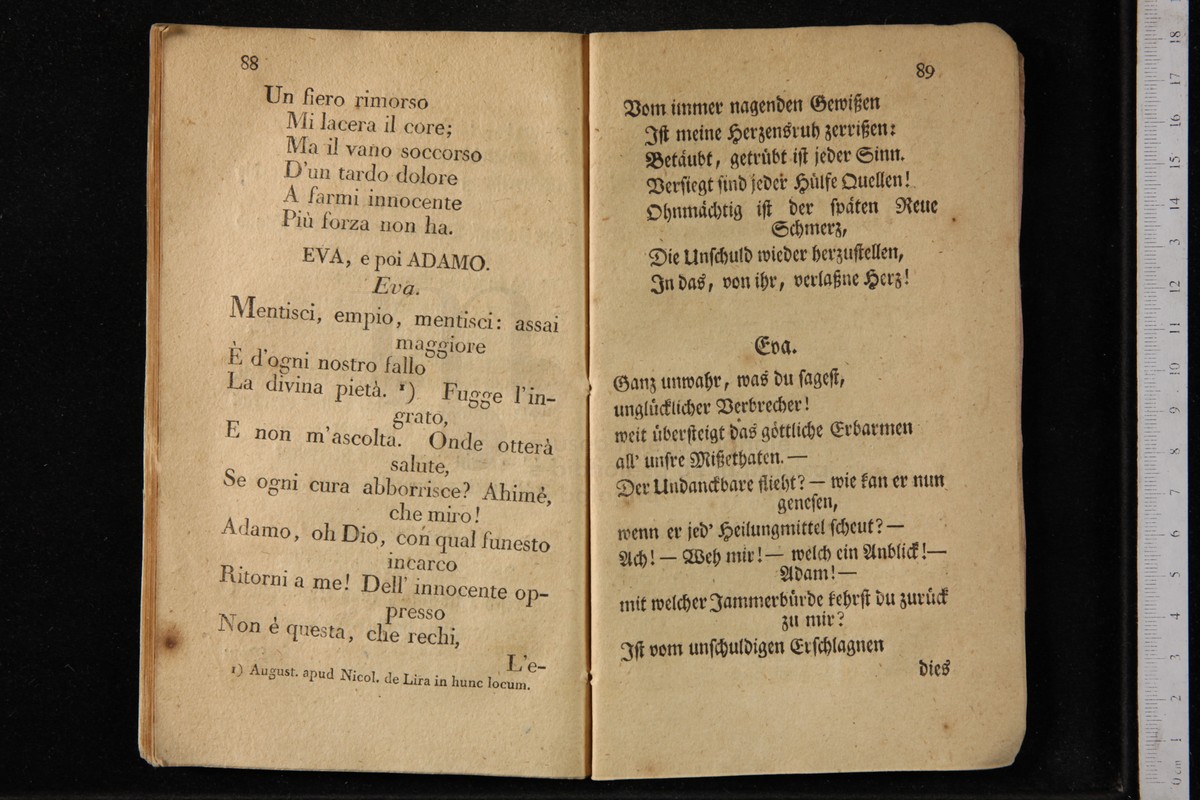 88
Un fiero rimorso
Mi lacera il core;
Ma il vano soccorso
D'un tardo dolore
A farmi innocente
Più forza non ha.
EVA, e poi ADAMO.
Eva.
Mentisci, empio, mentisci: assai
maggiore
È d'ogni nostro fallo
La divina pietà. ¹) Fugge l'in-
grato,
E non m'ascolta. Onde otterà
salute,
Se ogni cura abborrisce? Ahimè,
che miro!
Adamo, oh Dio, con qual funesto
incarco
Ritorni a me! Dell' innocente op-
presso
Non è questa, che rechi,
L'e-
1) August. apud Nicol. de Lira in hunc locum.
89
Vom immer nagenden Gewißen
Ist meine Herzensruh zerrißen:
Betäubt, getrübt ist jeder Sinn.
Versiegt sind jeder Hülfe Quellen!
Ohnmächtig ist der späten Reue
Schmerz,
Die Unschuld wieder herzustellen,
In das, von ihr, verlaßne Herz!
Eva.
Ganz unwahr, was du sagest,
unglücklicher Verbrecher!
weit übersteigt das göttliche Erbarmen
all' unsre Mißethaten. —
Der Undanckbare flieht? — wie kan er nun
genesen,
wenn er jed' Heilungmittel scheut? —
Ach! — Weh mir! — welch ein Anblick! —
Adam! —
mit welcher Jammerbürde kehrst du zurück
zu mir?
Ist vom unschuldigen Erschlagnen
dies
18
17
16
15
14
13
12
11
10
9
8
7
6
5
4
3
2
1
0 cm